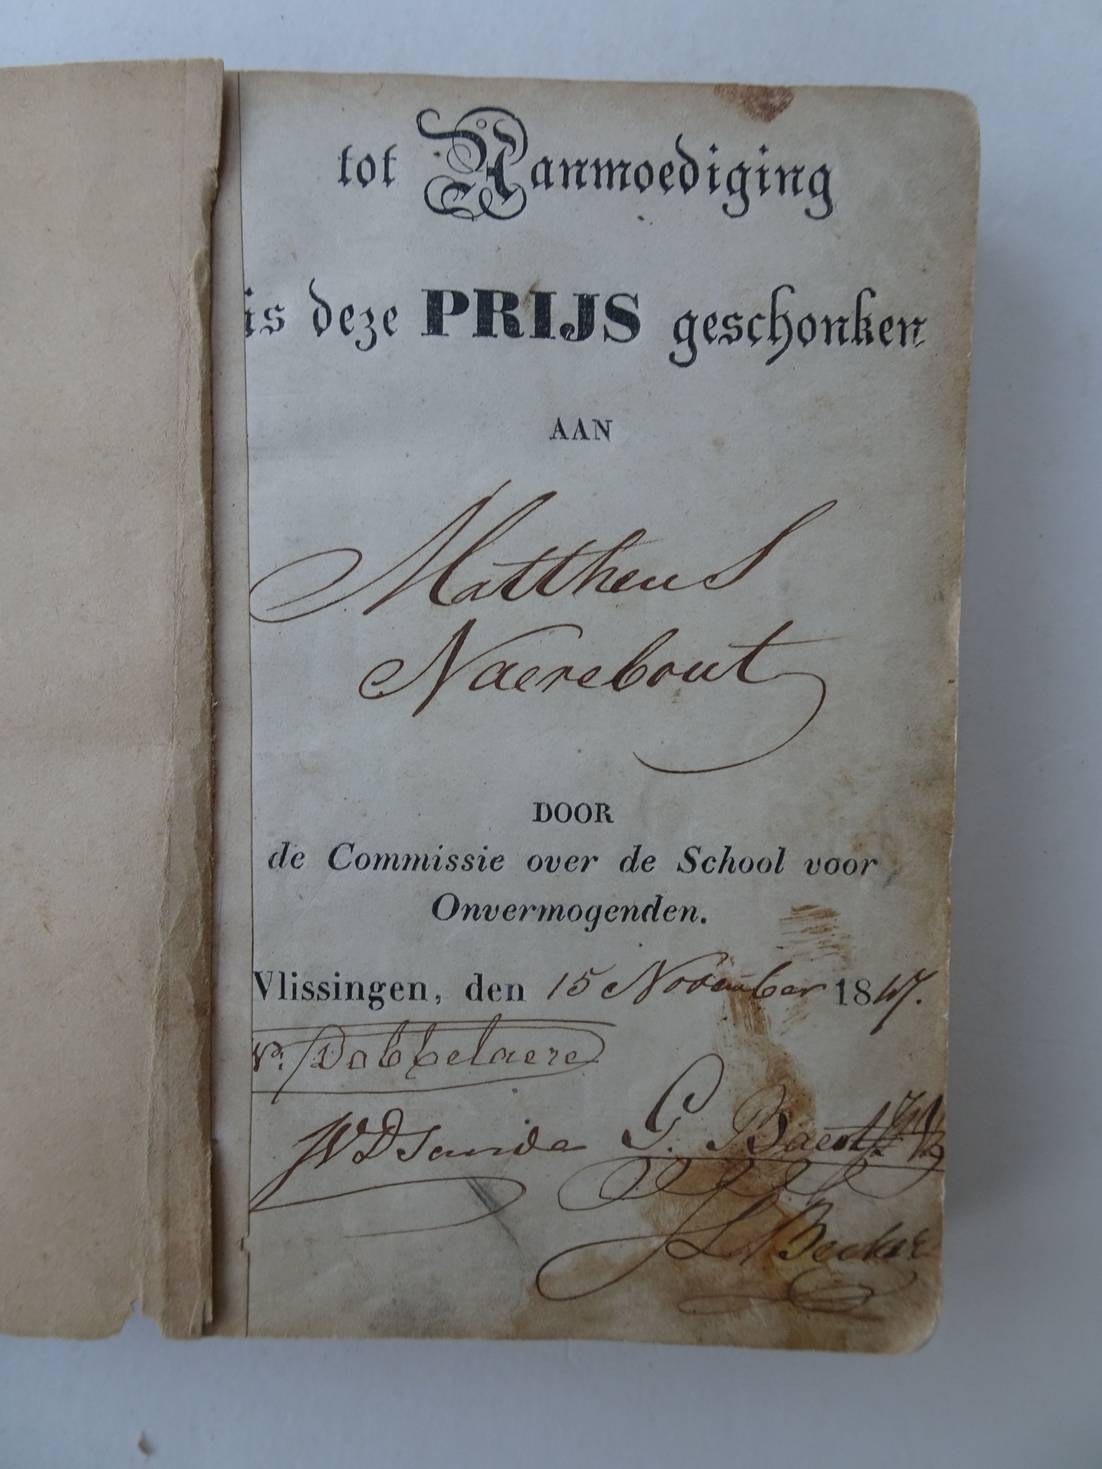 tot Aanmoediging
is deze PRIJS geschonken
AAN
Mattheus
Naerebout
DOOR
de Commissie over de School voor
Onvermogenden.
Vlissingen, den 15 November 1847.
Dobbelaere
G.
Becker